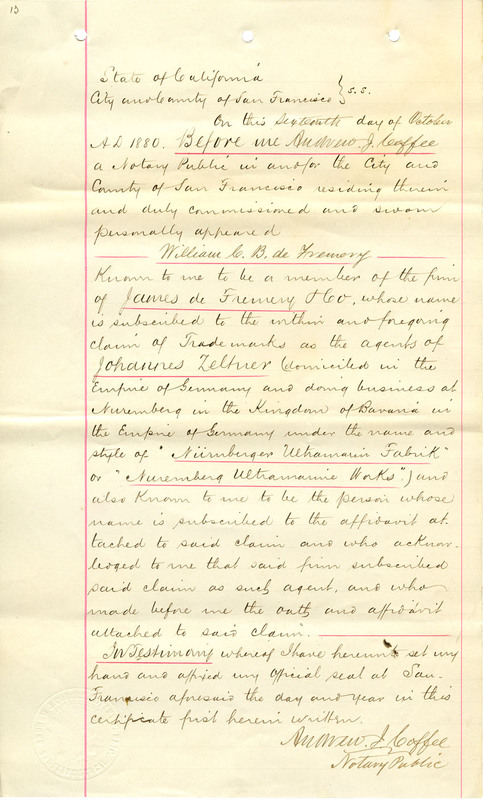 13
State of California
City and County of San Francisco } s.s.
On this Sixteenth day of October
A.D 1880. Before me Andrew J. Coffee
a Notary Public in and for the City and
County of San Francisco residing therein
and duly commissioned and sworn
personally appeared
William C. B. de Fremery
Known to me to be a member of the firm
of James de Fremery & Co, whose name
is subscribed to the within and foregoing
claim of Trademarks as the agents of
Johannes Zeltner (domiciled in the
Empire of Germany and doing business at
Nuremberg in the Kingdom of Bavaria in
the Empire of Germany under the name and
style of "Nürnberger Ultramarin Fabrik"
or "Nuremberg Ultramarine Works".) and
also Known to me to be the person whose
name is subscribed to the affidavit at-
tached to said claim and who acknow-
ledged to me that said firm subscribed
said claim as such agent, and who
made before me the oath and affidavit
attached to said claim.
In Testimony whereof I have hereunto set my
hand and affixed my Official seal at San-
Francisco aforesaid the day and year in this
certificate first herein written.
Andrew J. Coffee
Notary Public